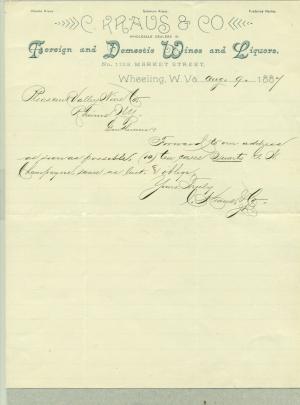 Charles Kraus. Solomon Kraus. Frederick Kraus.
C. KRAUS & CO.
WHOLESALE DEALERS IN
Foreign and Domestic Wines and Liquors,
No. 1123 MARKET STREET,
Wheeling, W. Va. Aug 9 1887
Pleasant Valley Wine Co
Rheims N.Y.
Gentlemen
Forward to our address
as soon as possible, (10) ten cases Quarts G. W.
Champagne, same as last. & oblige,
Yours Truly
C. Kraus & Co